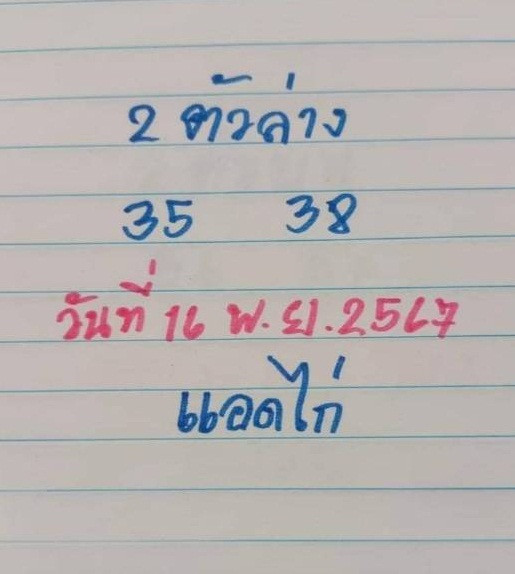 2 ตัวล่าง
35 38
วันที่ 16 พ.ย.2567
แอดไก่